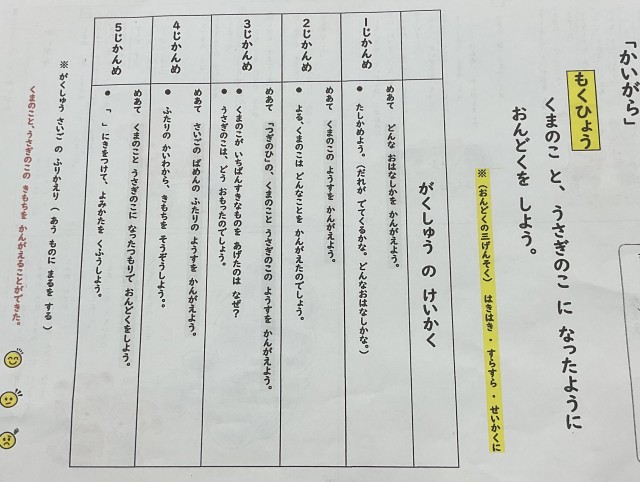 「かいがら」
もくひょう
くまのこ と、うさぎのこ に なったように
おんどくを しよう。
※（おんどくの三げんそく） はきはき・すらすら・せいかくに
がくしゅう の けいかく
1じかんめ
めあて どんな おはなしかを かんがえよう。
● たしかめよう。（だれが でてくるかな。どんなおはなしかな。）
2じかんめ
めあて くまのこの ようすを かんがえよう。
● よる、くまのこは どんなことを かんがえたのでしょう。
3じかんめ
めあて 「つぎのひ」の、くまのこと うさぎのこの ようすを かんがえよう。
● くまのこが いちばんすきなものを あげたのは なぜ？
● うさぎのこは、どう おもったのでしょう。
4じかんめ
めあて さいごの ばめんの ふたりの ようすを かんがえよう。
● ふたりの かいわから、きもちを そうぞうしよう。
5じかんめ
めあて くまのこと うさぎのこに なったつもりで おんどくをしよう。
● 「 」にきをつけて、よみかたを くふうしよう。
※ がくしゅう さいご の ふりかえり（ あう ものに まるを する ）
くまのこと、うさぎのこの きもちを かんがえることができた。